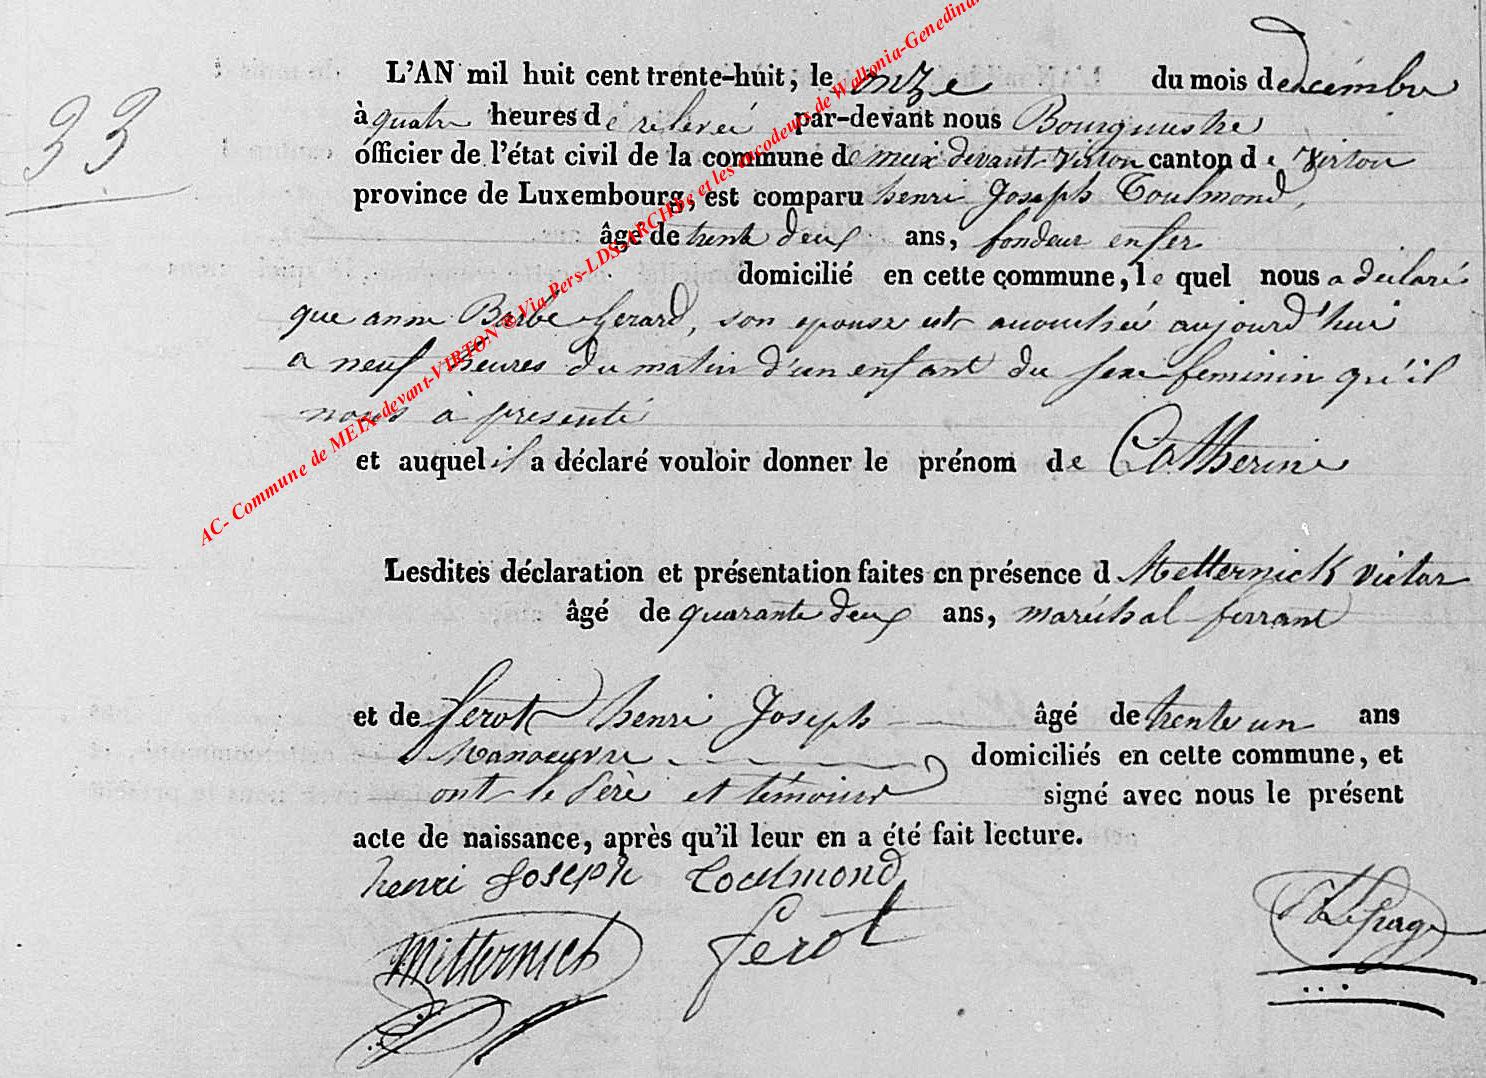 33
L'AN mil huit cent trente-huit, le onze du mois de decémbre
à quatre heures dé relevéé par-devant nous Bourguestre
officier de l'état civil de la commune de meix devant virton canton de Virton
province de Luxembourg, est comparu henri Joseph Toulmond,
âgé de trente deux ans, fondeur en fer
domicilié en cette commune, le quel nous a déclaré
que anne Barbe Gerard, son epouse est accouchée aujourd'hui
a neuf heures du matin d'un enfant du sexe feminin qu'il
nous à presenté
et auquel il a déclaré vouloir donner le prénom de Catherine
Lesdites déclaration et présentation faites en présence d Metternick victor
âgé de quarante deux ans, maréchal ferrant
et de ferot henri Joseph âgé de trente un ans
Manoeuvre domiciliés en cette commune, et
ont le père et témoins signé avec nous le présent
acte de naissance, après qu'il leur en a été fait lecture.
henri Joseph Toulmond
Mitternich ferot Lepage
AC- Commune de MEIX-devant-VIRTON ® Via Pers-LDS-ARCHIve et les encodeurs de Wallonia-Genedina